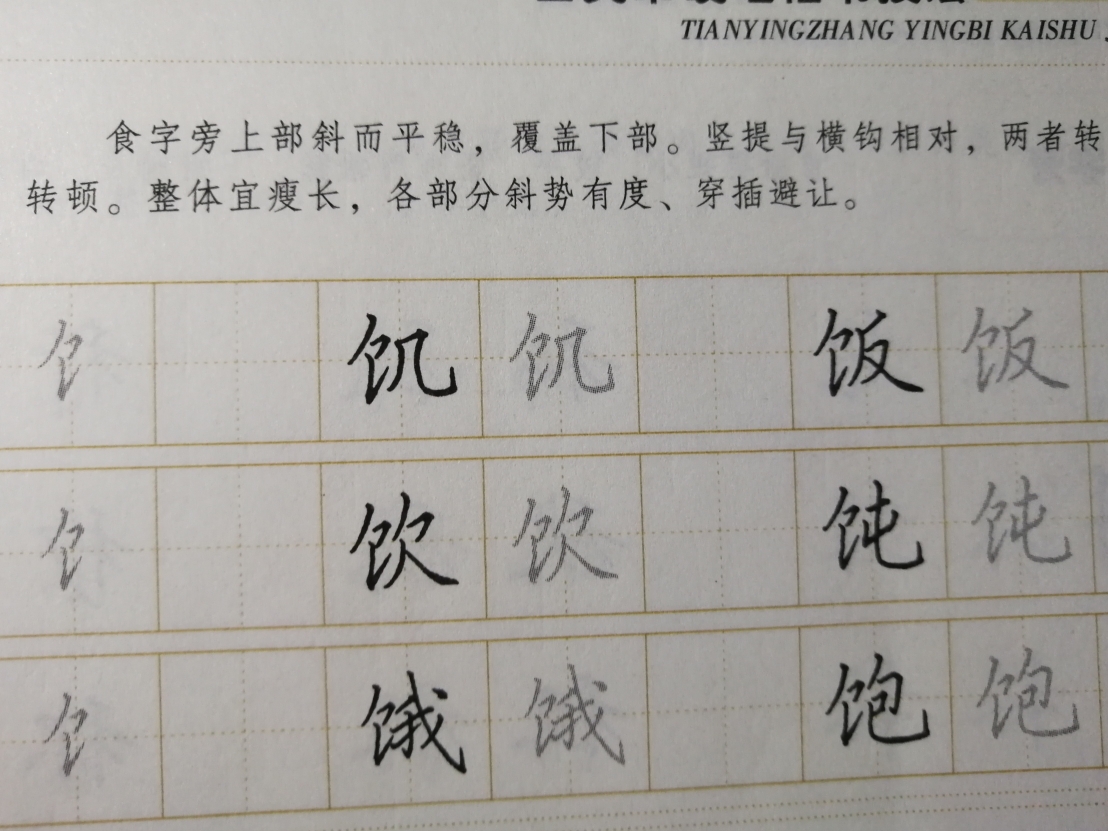 TIANYINGZHANG YINGBI KAISHU
食字旁上部斜而平稳，覆盖下部。竖提与横钩相对，两者转
转顿。整体宜瘦长，各部分斜势有度、穿插避让。
饣 饥 饥 饭 饭
饣 饮 饮 饨 饨
饣 饿 饿 饱 饱